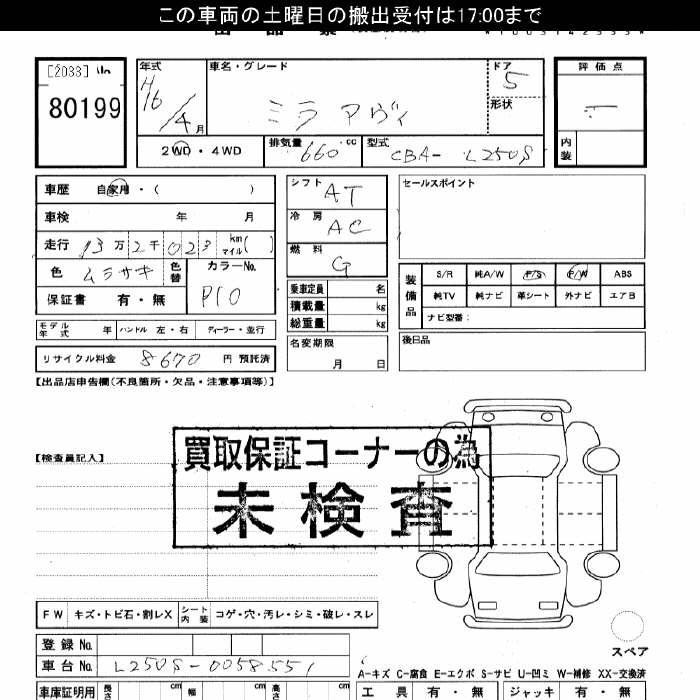 この車両の土曜日の搬出受付は17:00まで
[2033]
80199
年式 H16/4月
車名・グレード ミラ アヴィ
ドア 5
形状
評価点
内装
2WD・4WD
排気量 660 cc
型式 CBA-L250S
車歴 自家用・( )
シフト AT
セールスポイント
車検 年 月
冷房 AC
走行 13万2千023 km マイル( )
燃料 G
色 ムラサキ 色替
カラーNo. P10
保証書 有・無
乗車定員 名
積載量 kg
総重量 kg
装備品 S/R 純A/W P/S P/W ABS
純TV 純ナビ 革シート 外ナビ エアB
ナビ型番:
モデル年式 年 ハンドル 左・右 ディーラー・並行
名変期限 月 日
後日品
リサイクル料金 8670 円 預託済
【出品店申告欄(不良箇所・欠品・注意事項等)】
【検査員記入】
買取保証コーナーの為
未検査
FW キズ・トビ石・割レX シート内装 コゲ・穴・汚レ・シミ・破レ・スレ
スペア
登録No.
車台No. L250S-0058551
A-キズ C-腐食 E-エクボ S-サビ U-凹ミ W-補修 XX-交換済
車庫証明用 長さ cm 幅 cm 高さ cm
工具 有・無 ジャッキ 有・無